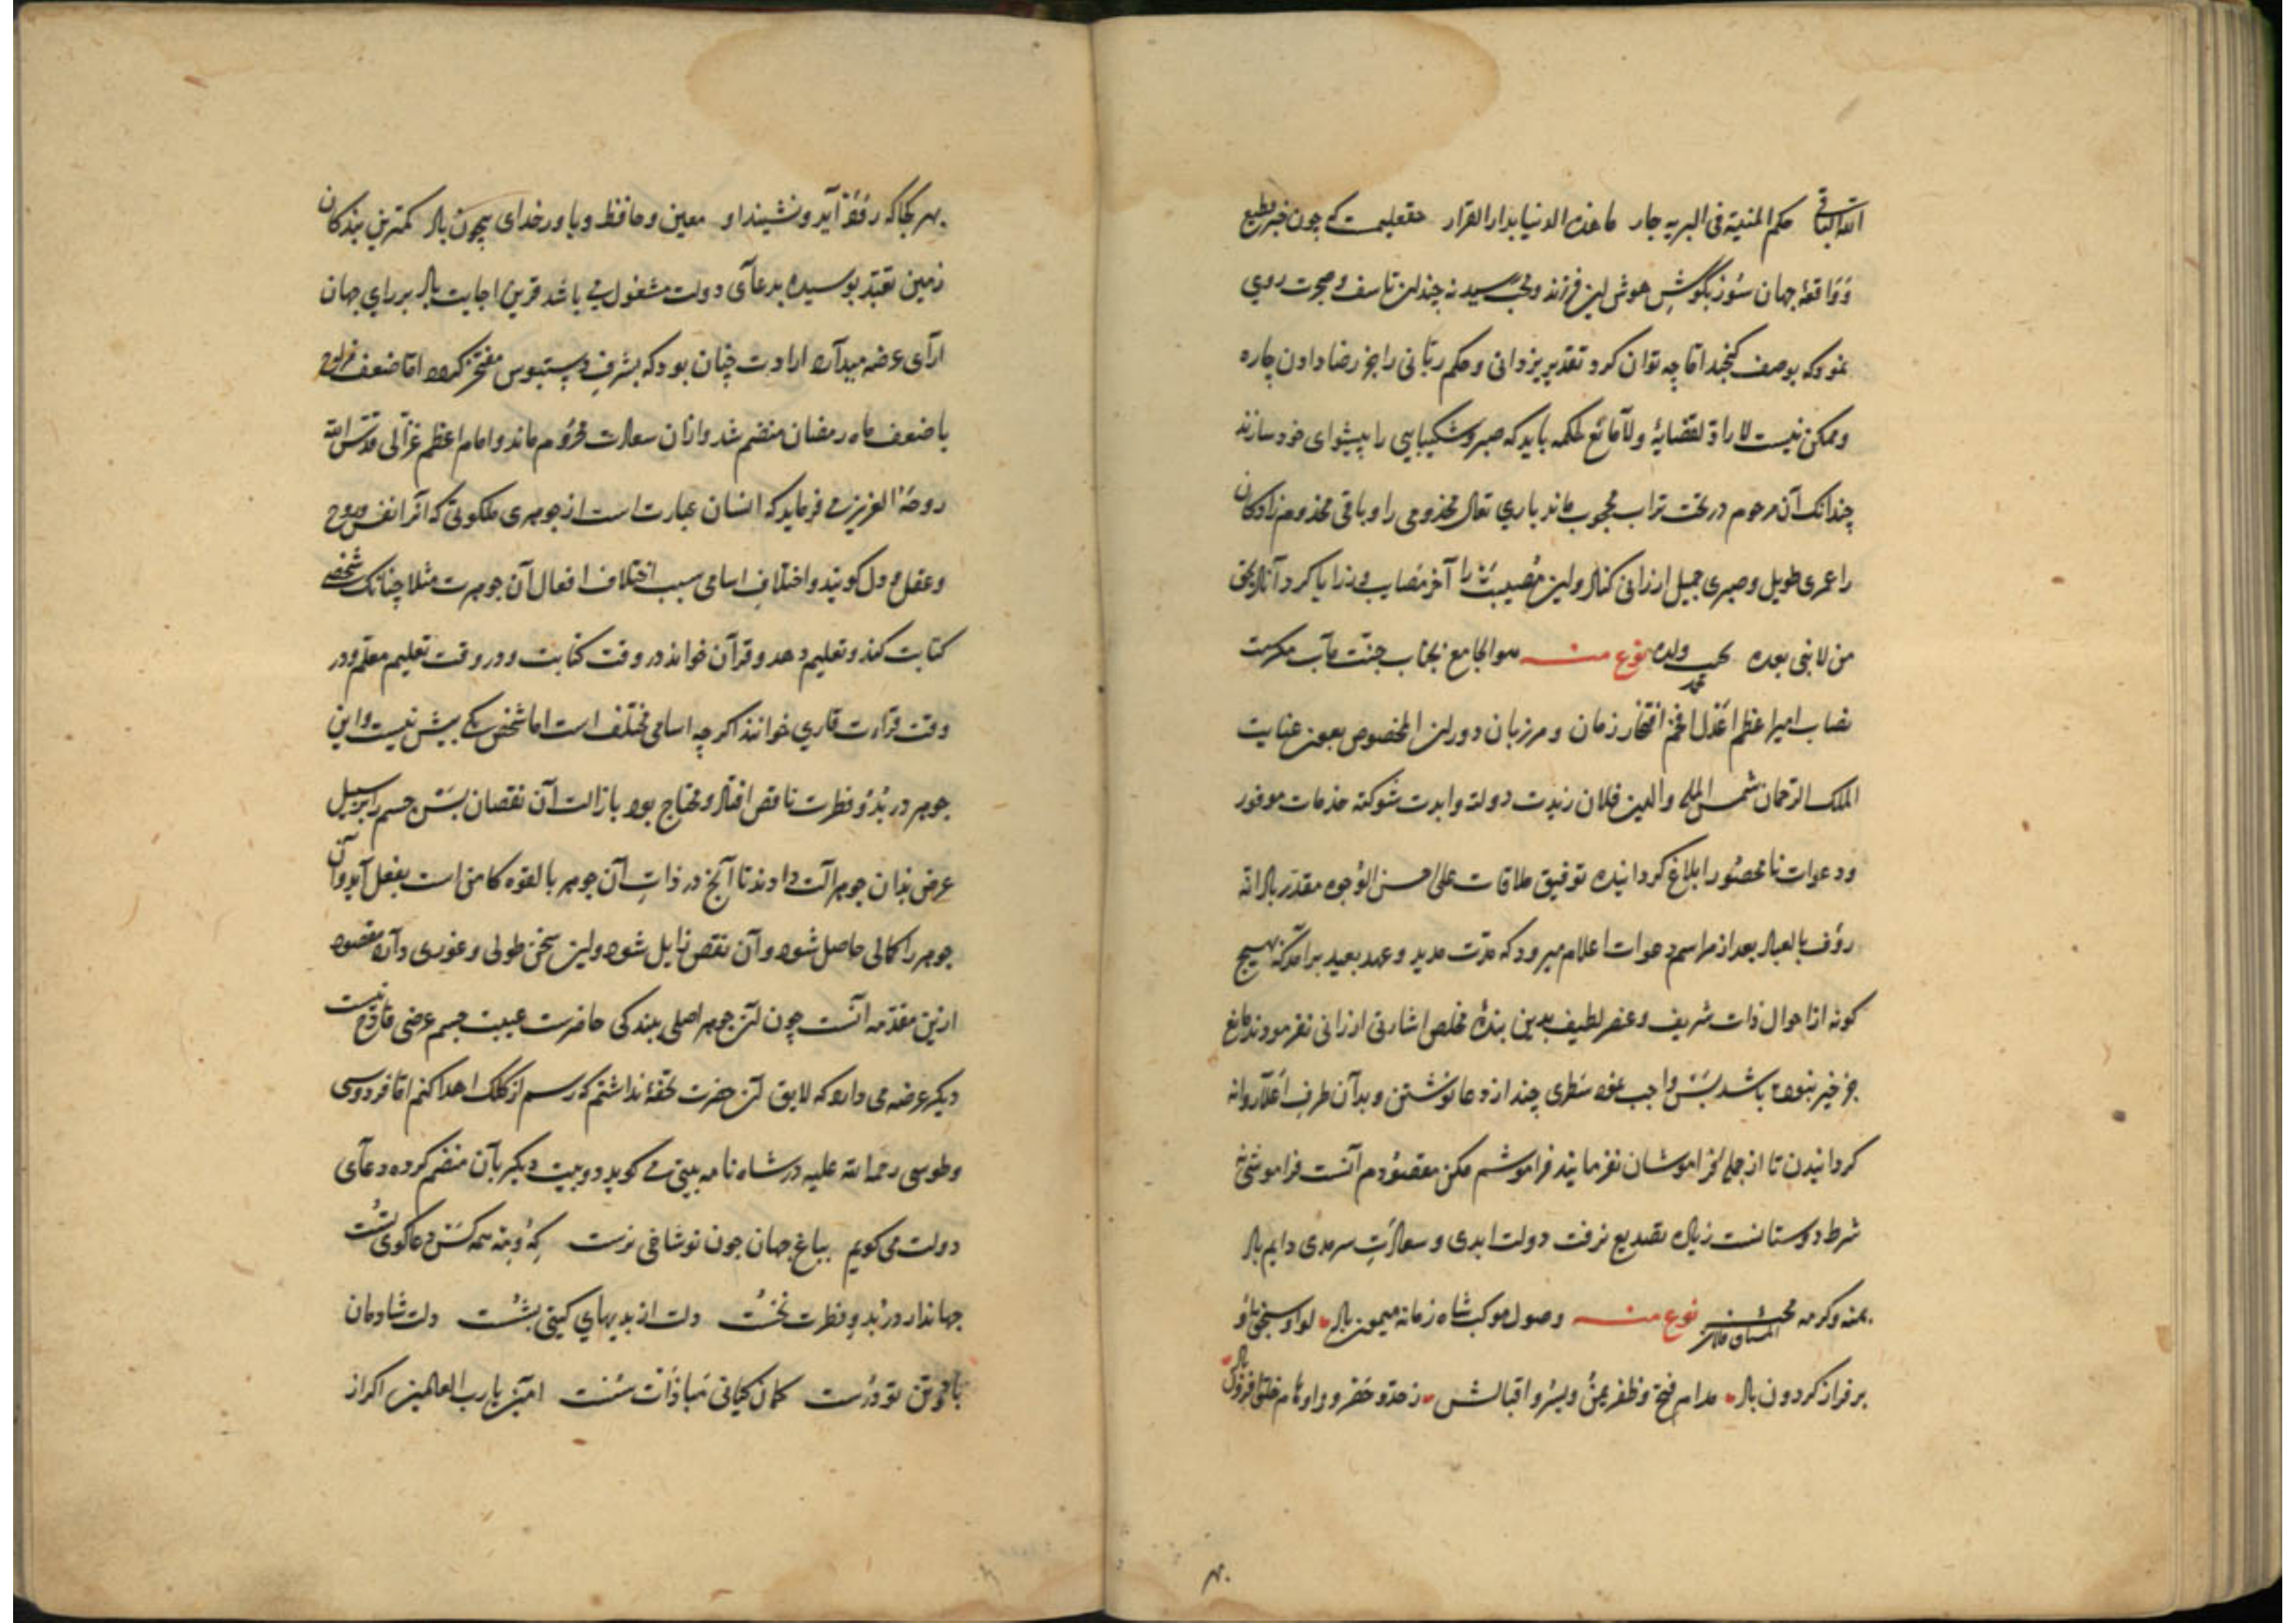 الله الباقی حکم المنیة فی البریه جار ما هذه الدنیا بدار القرار حقعلیمست که چون خبر فظیع
و واقعهٔ جهان سوز بگوش هوش این فرزند رسید نه چندان تاسف و ضجرت روی
نمود که بوصف کنجد اما چه توان کرد تقدیر یزدانی و حکم ربانی را بجز رضا دادن چاره
و ممکن نیست لا راد لقضایهٔ ولا مانع لحکمه باید که صبر و شکیبایی را پیشوای خود سازند
چندانک آن مرحوم در تحت تراب محجوب ماند باری تعالی مخدومی را و باقی مخدوم زادکان
را عمری طویل و صبری جمیل ارزانی کناد و این مصیبت را آخر مصایب و رزایا کرداناد بحق
من لا نبی بعده محبه ولده نوع منه هو الجامع بجناب جنت مآب مکرمت
نصاب امیر اعظم اعدل افخم افتخار زمان و مرزبان دوران المخصوص بعون عنایت
الملک الرحمان شمس المله والدین فلان زیدت دولته وابدت شوکته خدمات موفور
و دعوات نامحصور ابلاغ کردانیده توفیق ملاقات علی احسن الوجوه مقدر باد انه
رؤف بالعباد بعد از مراسم دعوات اعلام میرود که مدت مدید و عهد بعید برآمد که بهیچ
کونه از احوال ذات شریف و عنصر لطیف بدین بندهٔ مخلص اشارتی ارزانی نفرمودند مانع
جز خیر نبوده باشد بس واجب نمود سطری چند از دعا نوشتن و بدآن طرف اعلا روانه
کردانیدن تا از جمله فراموشان نفرمایند فراموشم مکن مقصودم آنست فراموشی نه
شرط دوستانست زیاده تصدیع نرفت دولت ابدی و سعادت سرمدی دایم باد
بمنه و کرمه نوع منه وصول موکب شاه زمانه میمون باد لوا و سنجق او
بر فراز کردون باد مدام فتح و ظفر یمن و یسر و اقبالش ز حد و حصر و
بهر کجا که رود آید و نشیند او معین و حافظ و یاور خدای بیچون باد کمترین بندکان
زمین تعبد بوسیده بدعای دولت مشغول می باشد قرین اجابت باد بر رای جهان
آرای عرضه میدارد ارادت چنان بود که بشرف دستبوس مفتخر کردد اما ضعف مزاج
با ضعف ماه رمضان منضم شد و ازان سعادت محروم ماند و امام اعظم غزالی قدس الله
روحه العزیز می فرماید که انسان عبارت است از جوهری ملکوتی که آنرا نفس و روح
و عقل و دل کویند و اختلاف اسامی سبب اختلاف افعال آن جوهرست مثلا چنانک شخصی
کتابت کند و تعلیم دهد و قرآن خواند در وقت کتابت و در وقت تعلیم معلم و در
وقت قراءت قاری خوانند اکر چه اسامی مختلف است اما شخص یکی بیش نیست و این
جوهر در بدو فطرت ناقص افتاد و محتاج بود بازالت آن نقصان بس جسم را بر سبیل
عرض بدان جوهر آلت دادند تا آنچ در ذات آن جوهر بالقوه کامن است بفعل آید و آن
جوهر را کمالی حاصل شود و آن نقص زایل شود و این سخن طولی و غوری دارد مقصود
ازین مقدمه آنست چون آن جوهر اصلی ببندکی حاضرست غیبت جسم عرضی قادح نیست
دیکر عرضه می دارد که لایق آن حضرت تحفهٔ نداشتم که رسم از کلک اهدا کنم اما فردوسی
و طوسی رحمة الله علیه در شاه نامه بیتی می کوید دو بیت دیکر بآن منضم کرده دعای
دولت می کویم بباغ جهان چون تو شاخی نرست که و مه همه کس دعا کوی تست
جهاندار در بدو فطرت نخست دلت از بدیهای کیتی بشست دلت شادمان
باد و تن تو درست کمان کیانی مباذات سست آمین یا رب العالمین اکر از